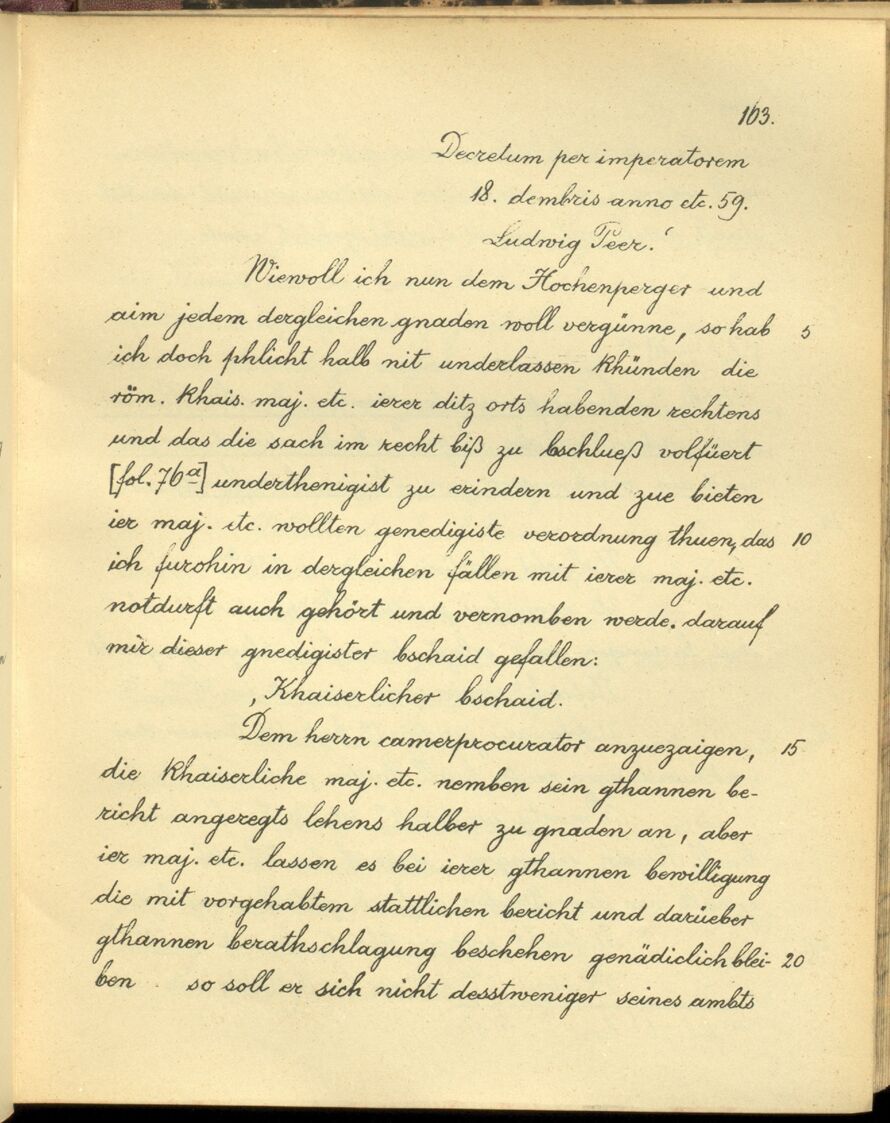 103.
Decretum per imperatorem
18. dembris anno etc. 59.
Ludwig Peer.'
Wiewoll ich nun dem Hochenperger und
aim jedem dergleichen gnaden woll vergünne, so hab 5
ich doch phlicht halb nit underlassen khünden die
röm. khais. maj. etc. ierer ditz orts habenden rechtens
und das die sach im recht biß zu bschlueß volfüert
[fol. 76a] underthenigist zu erindern und zue bieten
ier maj. etc. wollten genedigiste verordnung thuen, das 10
ich furohin in dergleichen fällen mit ierer maj. etc.
notdurft auch gehört und vernomben werde. darauf
mir dieser gnedigister bschaid gefallen:
‚Khaiserlicher bschaid.
Dem herrn camerprocurator anzuezaigen, 15
die khaiserliche maj. etc. nemben sein gthannen be-
richt angeregts lehens halber zu gnaden an, aber
ier maj. etc. lassen es bei ierer gthannen bewilligung
die mit vorgehabtem stattlichen bericht und darüeber
gthannen berathschlagung beschehen genädiclich blei- 20
ben so soll er sich nicht desstweniger seines ambts